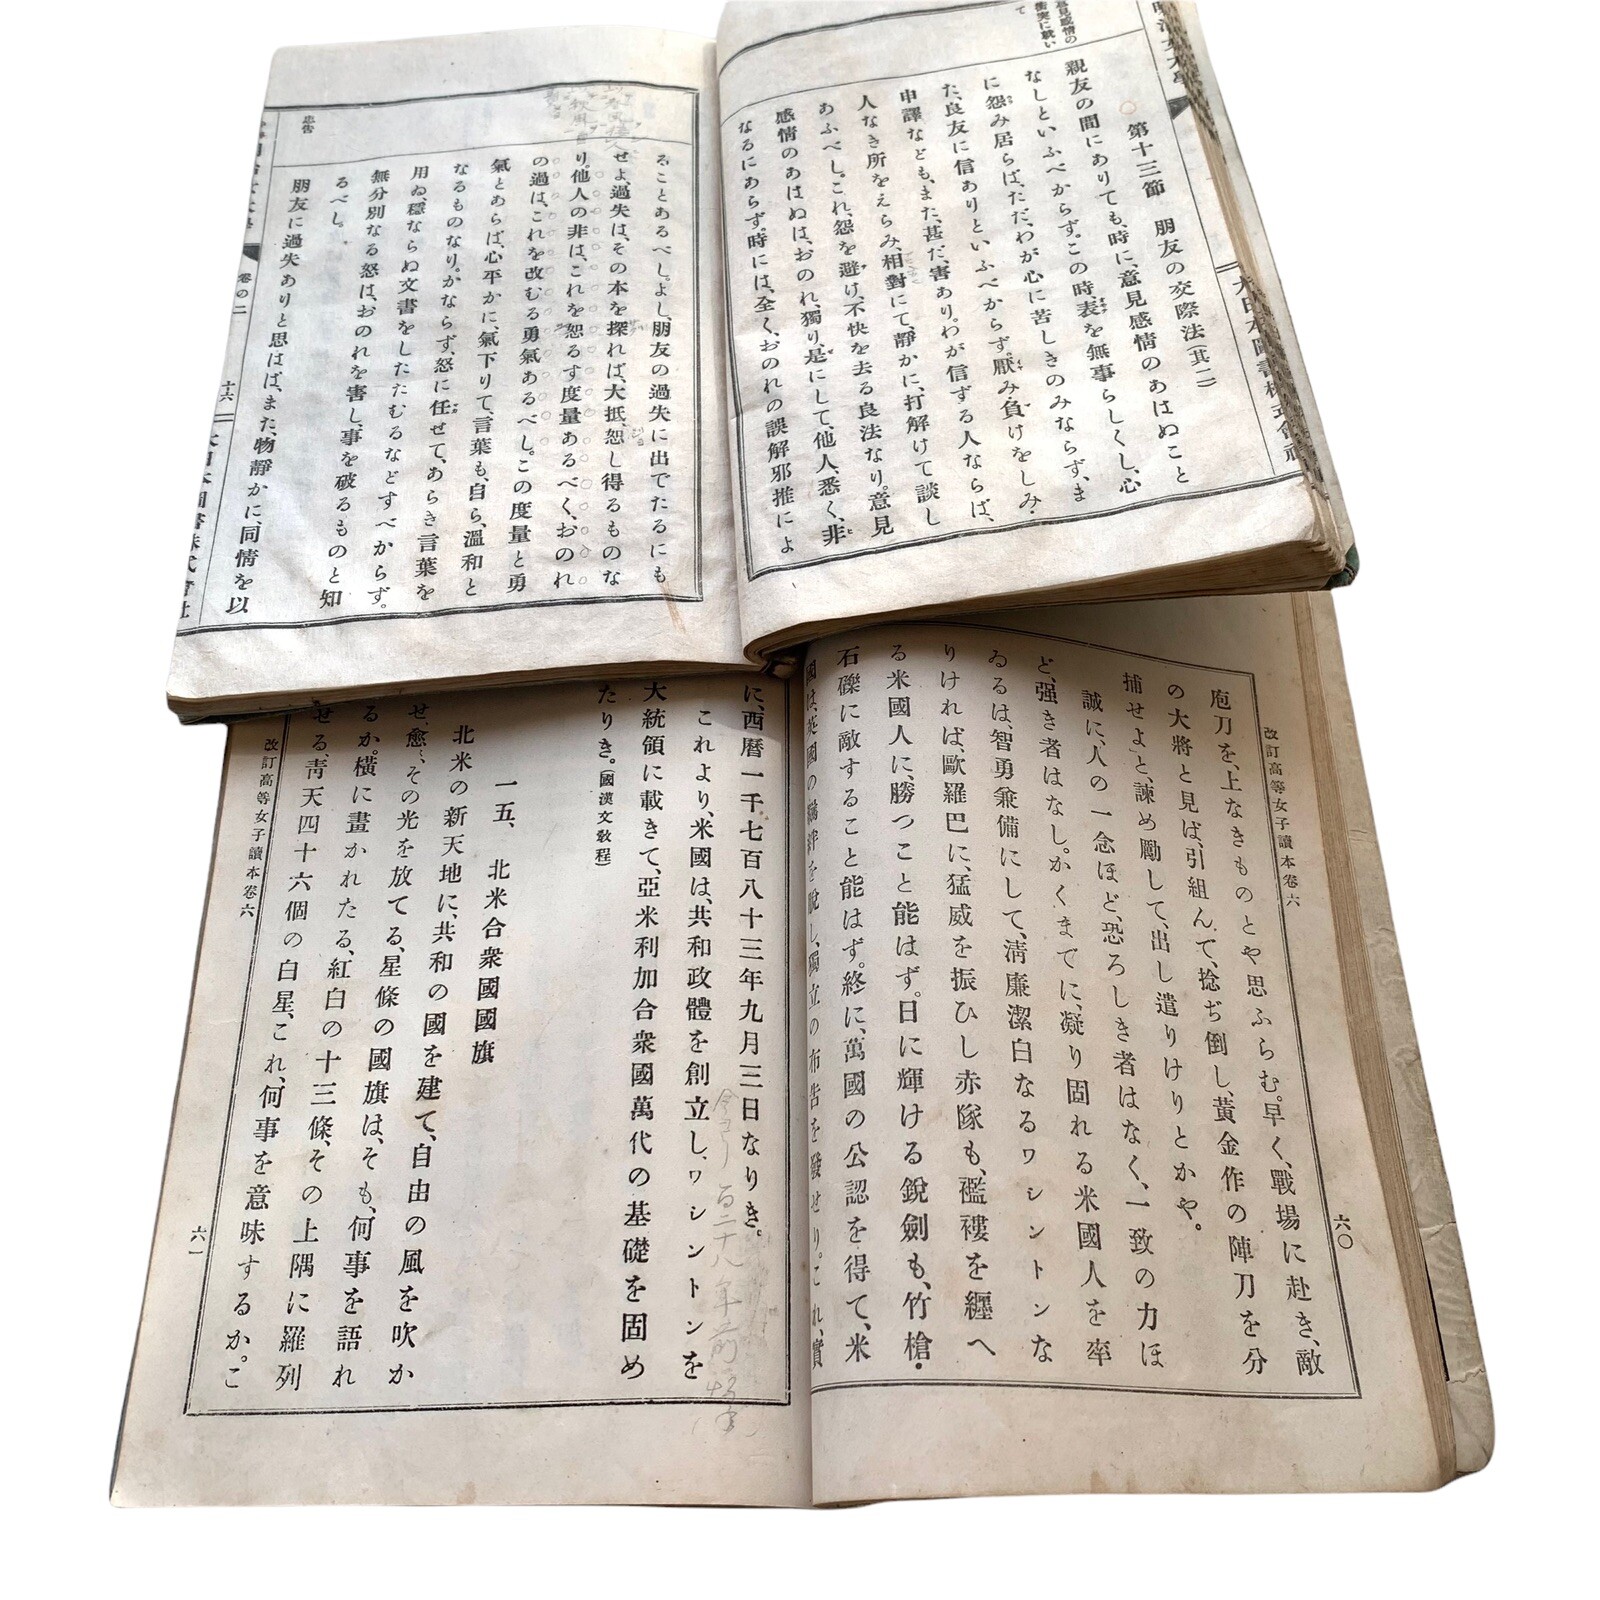 意見感情の
衝突に就い
て
第十三節　朋友の交際法(其二)
親友の間にありても、時に、意見感情のあはぬこと
なしといふべからず。この時、表を無事らしくし、心
に怨み居らば、ただ、わが心に苦しきのみならず、ま
た、良友に信ありといふべからず。厭み、負けをしみ・
申譯なども、また、甚だ、害あり。わが信ずる人ならば、
人なき所をえらみ、相對にて、靜かに、打解けて談し
あふべし。これ、怨を避け、不快を去る良法なり。意見
感情のあはぬは、おのれ、獨り、是にして、他人、悉く、非
なるにあらず。時には、全く、おのれの誤解邪推によ
大日本圖書株式會社
ることあるべし。よし、朋友の過失に出でたるにも
せよ、過失は、その本を探れば、大抵、恕し得るものな
り。他人の非は、これを恕るす度量あるべく、おのれ
の過は、これを改むる勇氣あるべし。この度量と勇
氣とあらば、心平かに、氣下りて、言葉も、自ら、溫和と
なるものなり。かならず、怒に任せて、あらき言葉を
用ゐ、穩ならぬ文書をしたたむるなどすべからず。
無分別なる怒は、おのれを害し、事を破るものと知
るべし。
忠告
朋友に過失ありと思はば、また、物靜かに、同情を以
卷の二
十六
改訂高等女子讀本卷六
六〇
庖刀を、上なきものとや思ふらむ。早く、戰場に赴き、敵
の大將と見ば、引組んて、捻ぢ倒し、黃金作の陣刀を分
捕せよ」と、諫め勵して、出し遣りけりとかや。
誠に、人の一念ほど、恐ろしき者はなく、一致の力ほ
ど、强き者はなし。かくまでに、凝り固れる米國人を率
ゐるは、智勇兼備にして、淸廉潔白なるワシントンな
りければ、歐羅巴に、猛威を振ひし赤隊も、襤褸を纒へ
る米國人に、勝つこと能はず。日に輝ける銳劍も、竹槍・
石礫に敵すること能はず。終に、萬國の公認を得て、米
國は、英國の羈絆を脫し、獨立の布告を發せり。これ、實
に、西曆一千七百八十三年九月三日なりき。
これより、米國は、共和政體を創立し、ワシントンを
大統領に載きて、亞米利加合衆國萬代の基礎を固め
たりき。(國漢文敎程)
一五、北米合衆國國旗
北米の新天地に、共和の國を建て、自由の風を吹か
せ、愈〻、その光を放てる、星條の國旗は、そも、何事を語れ
るか。橫に畫かれたる、紅白の十三條、その上隅に羅列
せる、靑天四十六個の白星、これ、何事を意味するか。こ
改訂高等女子讀本卷六
六一